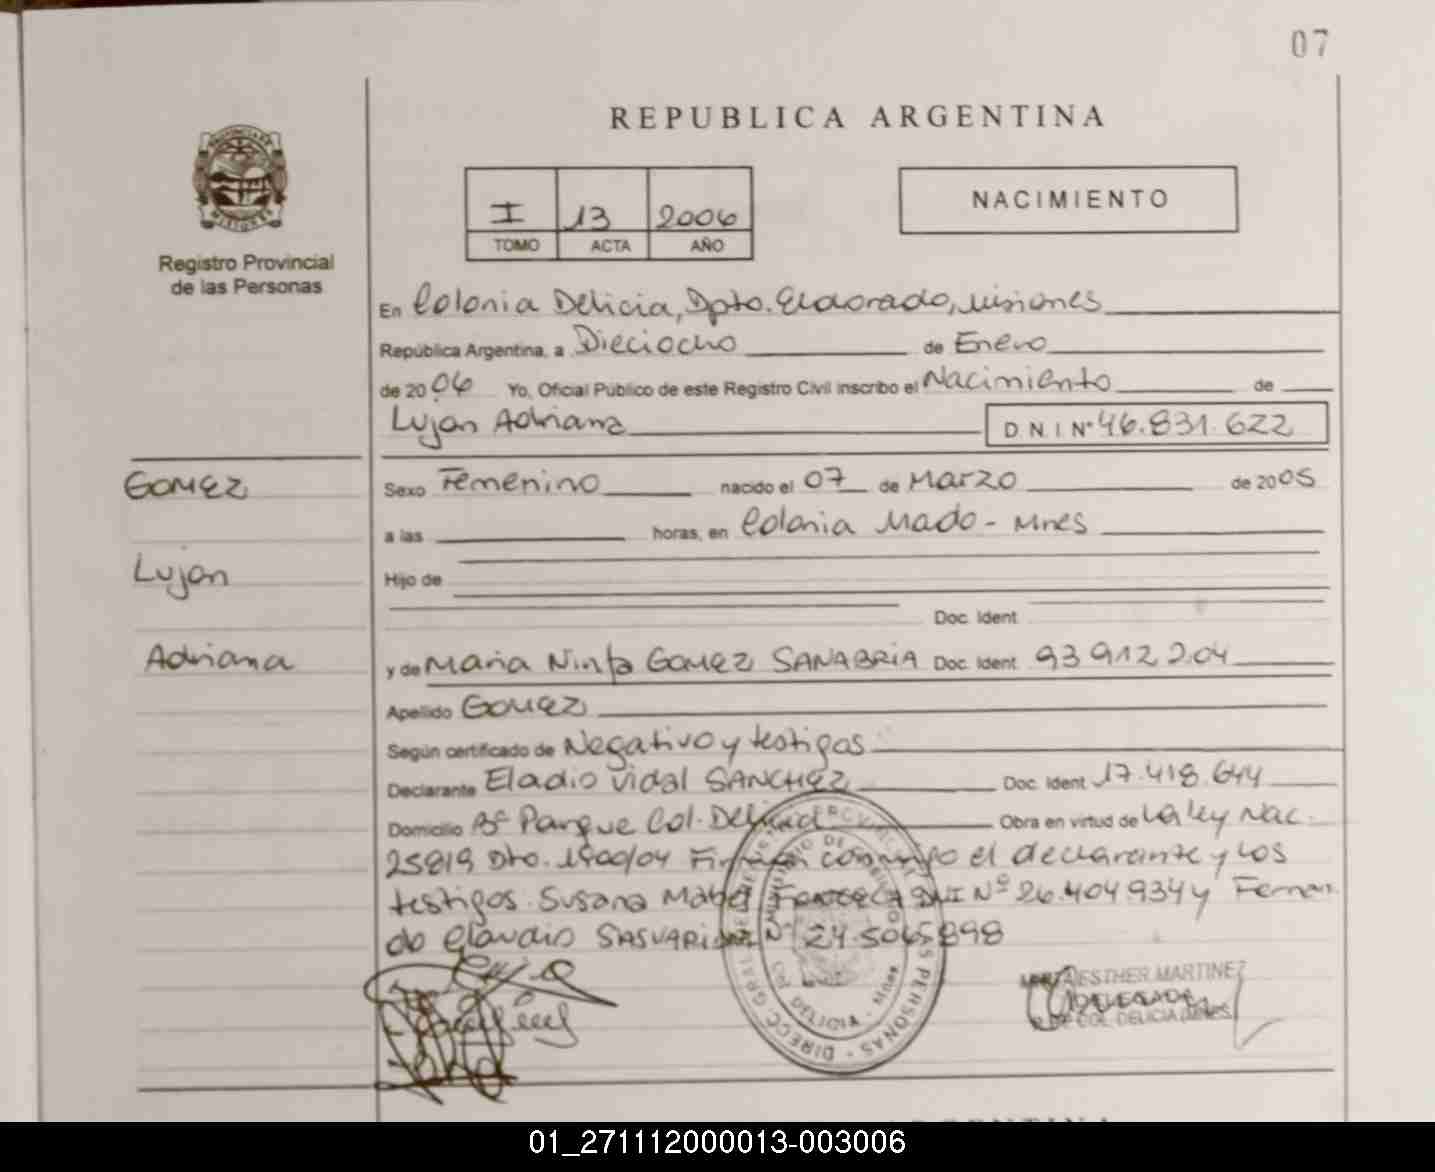 07
REPUBLICA ARGENTINA
I 13 2006
TOMO ACTA AÑO
NACIMIENTO
PROVINCIA DE
MISIONES
Registro Provincial
de las Personas
En Colonia Delicia, Dpto. Eldorado, Misiones
República Argentina, a Dieciocho de Enero
de 20 06 Yo, Oficial Público de este Registro Civil inscribo el Nacimiento de
Lujan Adriana D.N.I. Nº 46.831.622
GOMEZ
Lujan
Adriana
Sexo Femenino nacido el 07 de Marzo de 2005
a las horas, en Colonia Mado - Mnes
Hijo de
Doc. Ident
y de Maria Ninfa GOMEZ SANABRIA Doc. Ident 93 912 204
Apellido GOMEZ
Según certificado de Negativo y testigos
Declarante Eladio Vidal SANCHEZ Doc. Ident 17.418.644
Domicilio Bº Parque Col. Delicia Obra en virtud de La ley Nac.
25819 Dto. 1900/04 Firman conmigo el declarante y los
testigos Susana Mabel DNI Nº 26.404.934 y Fernan
do Claudio SASVARI DNI Nº 24.5065898
DIRECC. GRAL. PERSONAS
DELICIA - Mnes
ESTHER MARTINEZ
DELEGADA
COL. DELICIA (Mnes)
REPUBLICA ARGENTINA
01_271112000013-003006